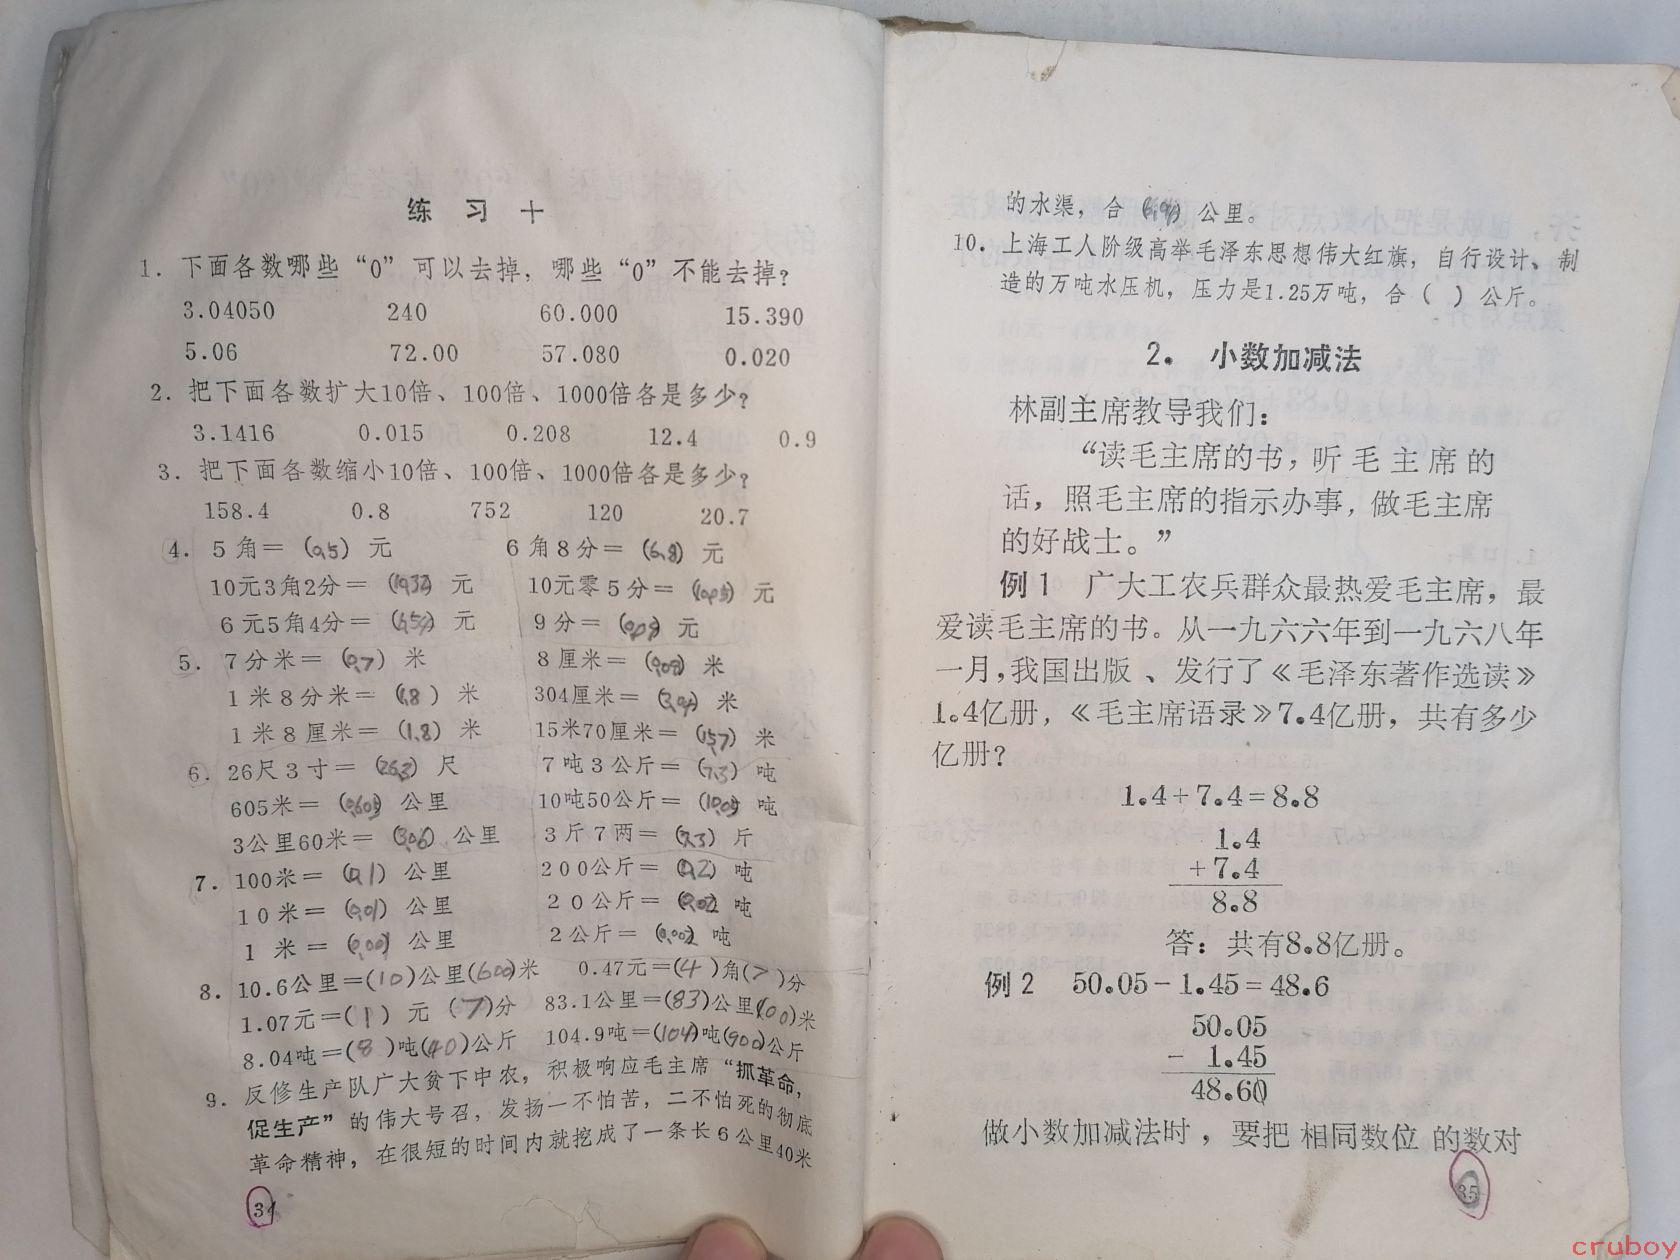 练 习 十
1. 下面各数哪些“0”可以去掉, 哪些“0”不能去掉?
3.04050 240 60.000 15.390
5.06 72.00 57.080 0.020
2. 把下面各数扩大10倍、100倍、1000倍各是多少?
3.1416 0.015 0.208 12.4 0.9
3. 把下面各数缩小10倍、100倍、1000倍各是多少?
158.4 0.8 752 120 20.7
4. 5角=(0.5)元 6角8分=(6.8)元
10元3角2分=(10.32)元 10元零5分=(10.05)元
6元5角4分=(6.54)元 9分=(0.09)元
5. 7分米=(0.7)米 8厘米=(0.08)米
1米8分米=(1.8)米 304厘米=(3.04)米
1米8厘米=(1.8)米 15米70厘米=(15.7)米
6. 26尺3寸=(26.3)尺 7吨3公斤=(7.3)吨
605米=(0.605)公里 10吨50公斤=(10.05)吨
3公里60米=(3.06)公里 3斤7两=( )斤
7. 100米=(0.1)公里 200公斤=(0.2)吨
10米=(0.01)公里 20公斤=(0.02)吨
1米=(0.001)公里 2公斤=(0.002)吨
8. 10.6公里=(10)公里(600)米 0.47元=(4)角(7)分
1.07元=(1)元(7)分 83.1公里=(83)公里(100)米
8.04吨=(8)吨(40)公斤 104.9吨=(104)吨(900)公斤
9. 反修生产队广大贫下中农, 积极响应毛主席“抓革命,
促生产”的伟大号召, 发扬一不怕苦, 二不怕死的彻底
革命精神, 在很短的时间内就挖成了一条长6公里40米
34
的水渠, 合(6.04)公里。
10. 上海工人阶级高举毛泽东思想伟大红旗, 自行设计、制
造的万吨水压机, 压力是1.25万吨, 合( )公斤。
2. 小数加减法
林副主席教导我们:
“读毛主席的书, 听毛主席的
话, 照毛主席的指示办事, 做毛主席
的好战士。”
例1 广大工农兵群众最热爱毛主席, 最
爱读毛主席的书。从一九六六年到一九六八年
一月, 我国出版、发行了《毛泽东著作选读》
1.4亿册, 《毛主席语录》7.4亿册, 共有多少
亿册?
1.4+7.4=8.8
1.4
+7.4
8.8
答: 共有8.8亿册。
例2 50.05-1.45=48.6
50.05
- 1.45
48.60
做小数加减法时, 要把相同数位的数对
35
cruboy